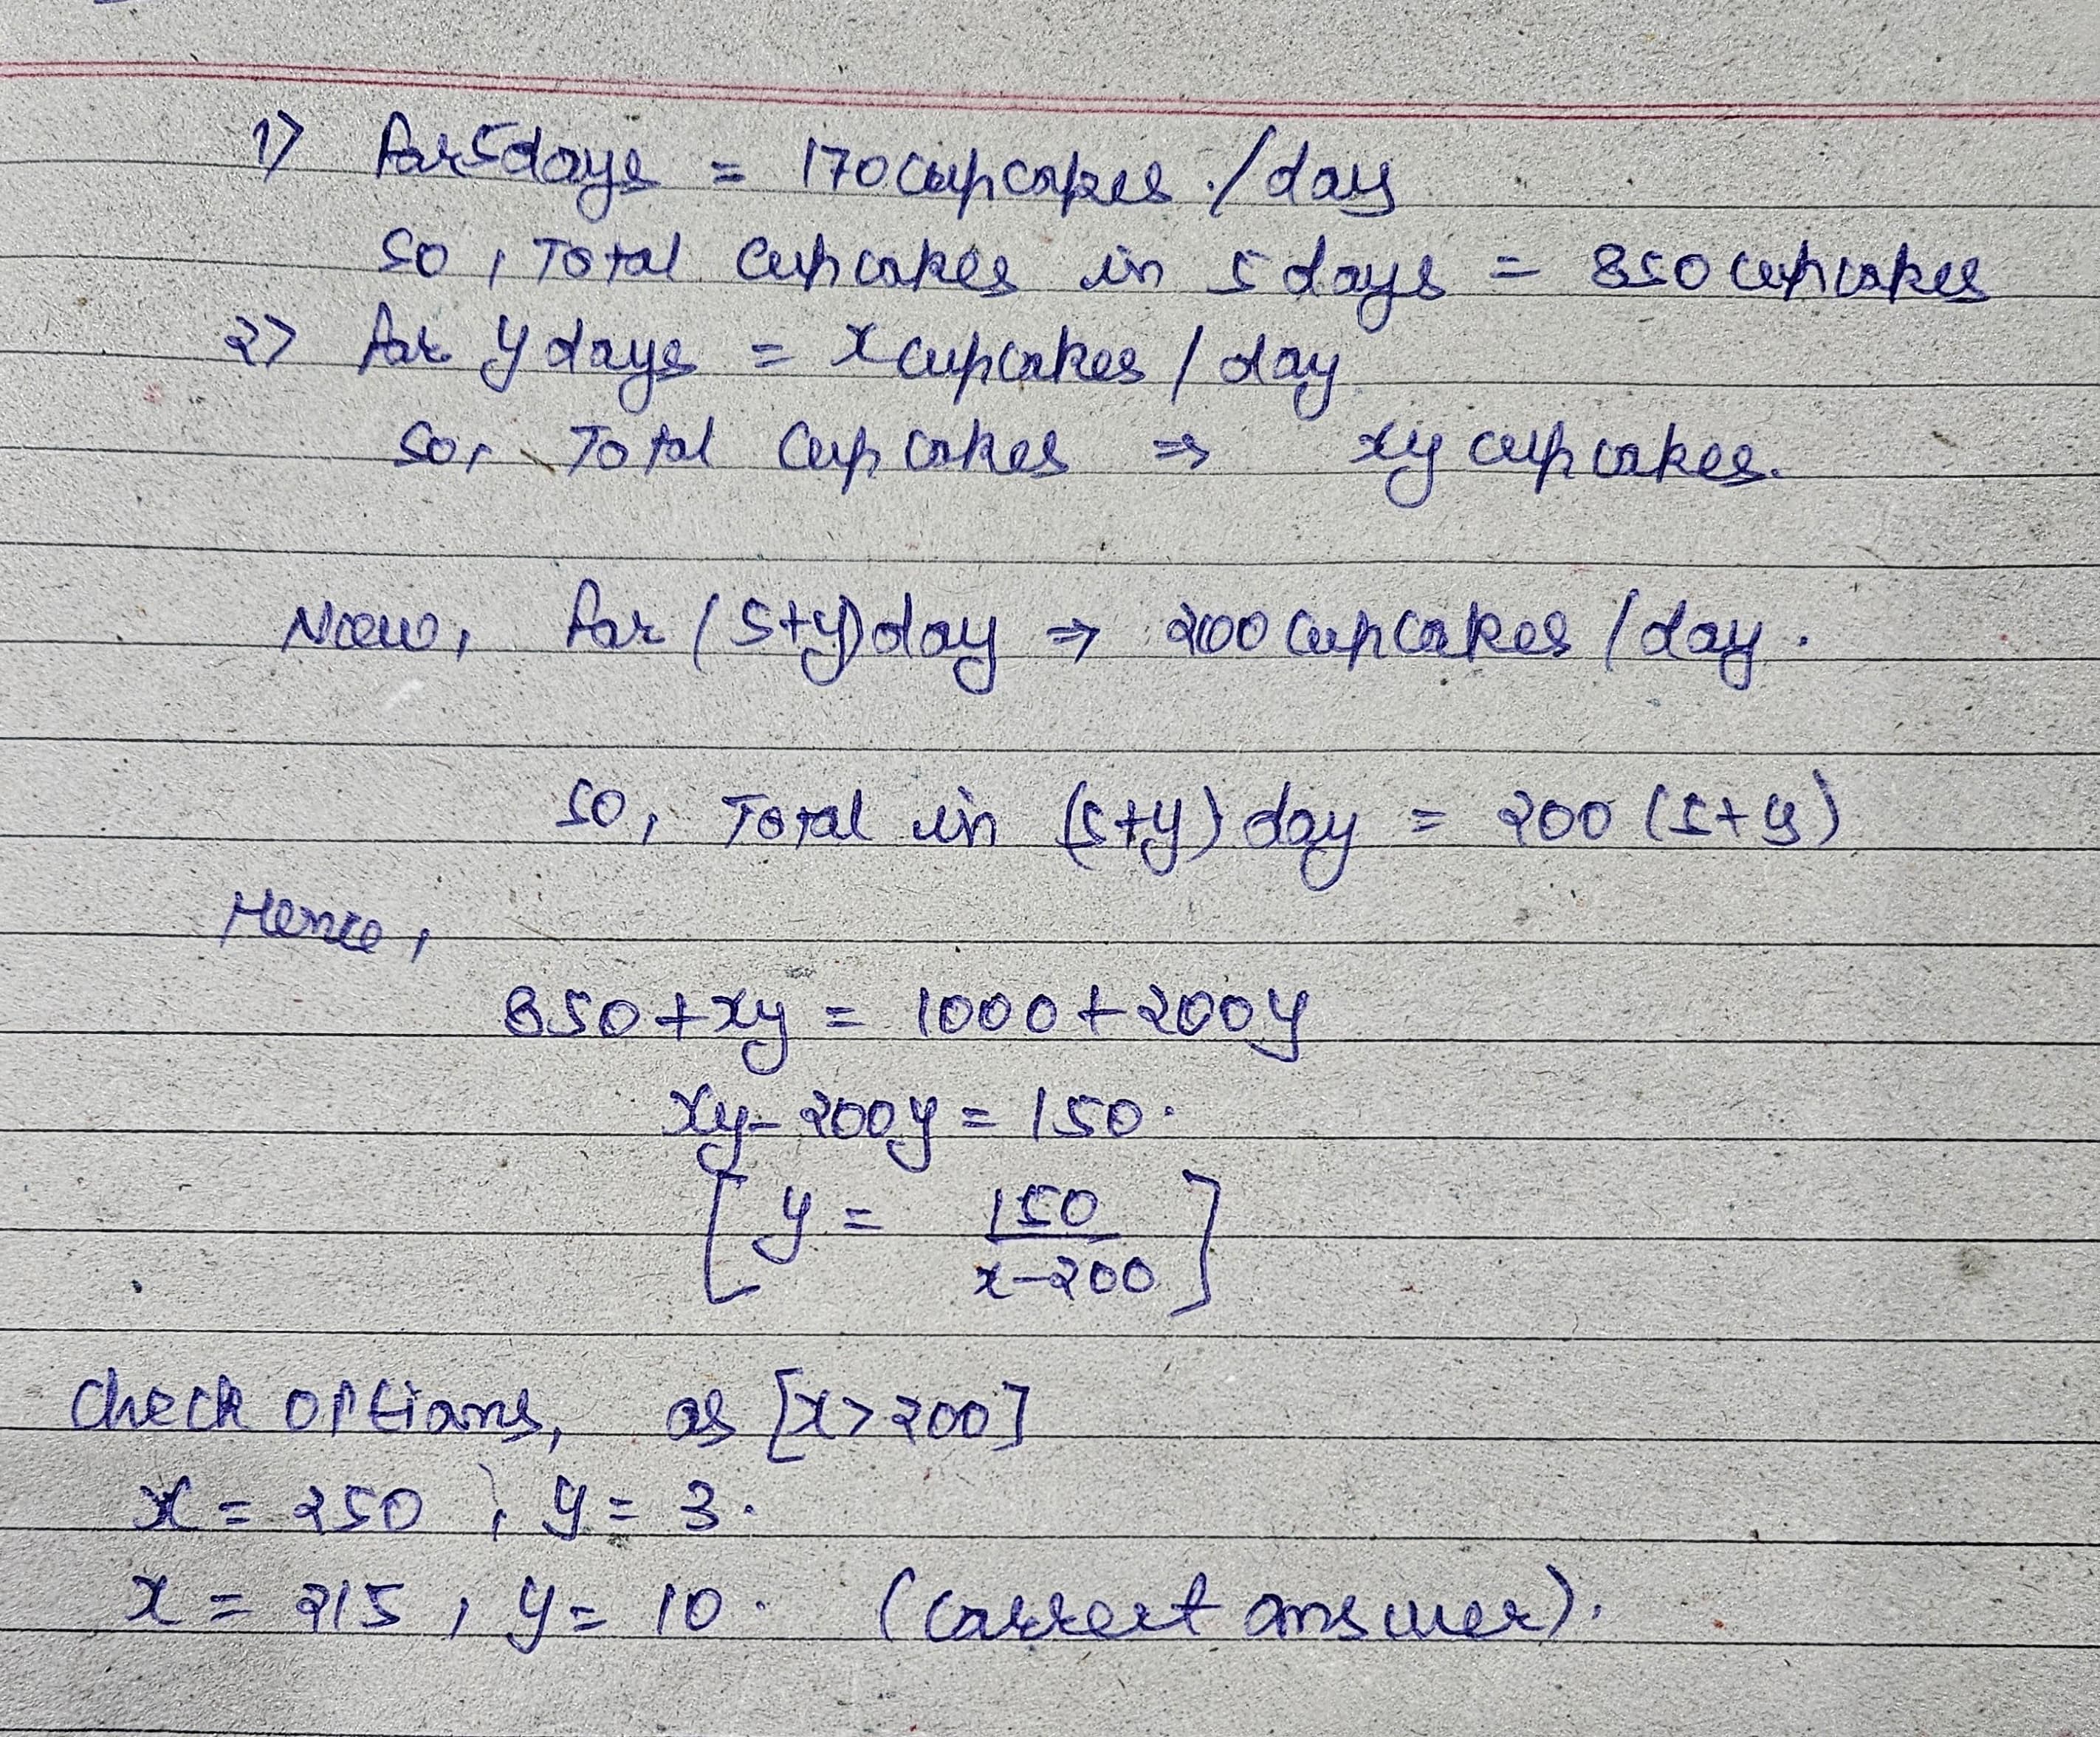 1) For 5 days = 170 cupcakes / day
so, Total cupcakes in 5 days = 850 cupcakes
2) For y days = x cupcakes / day
so, Total cupcakes ⇒ xy cupcakes.
Now, for (5+y) day ⇒ 200 cupcakes / day.
so, Total in (5+y) day = 200 (5+y)
Hence,
850 + xy = 1000 + 200y
xy - 200y = 150.
[ y = 150 / x-200 ]
check options, as [x > 200]
x = 250, y = 3.
x = 215, y = 10. (correct answer).